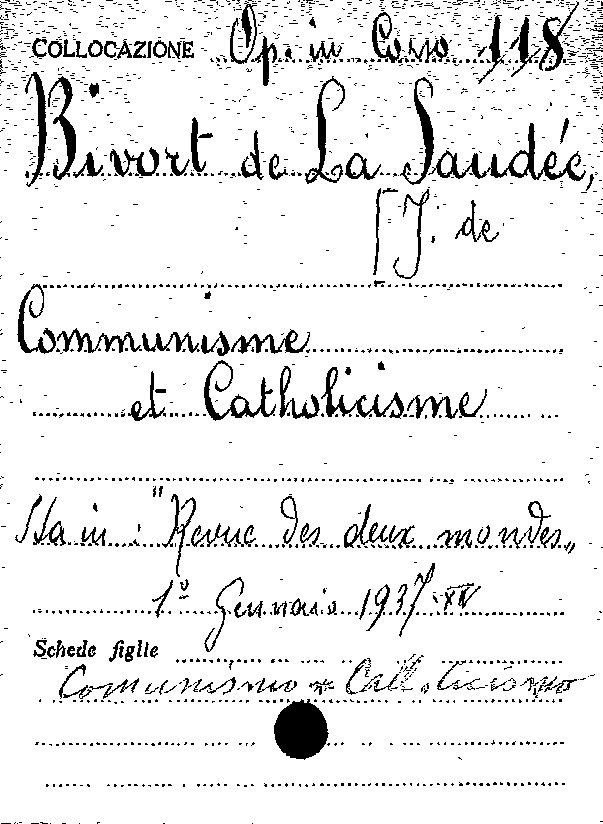 COLLOCAZIONE Op. in Corso 118
Bivort de La Saudée,
[J. de
Communisme
et Catholicisme
Sta in: "Revue des deux mondes„
1º Gennaio 1937-XV
Schede figlie
Comunismo e Cattolicismo